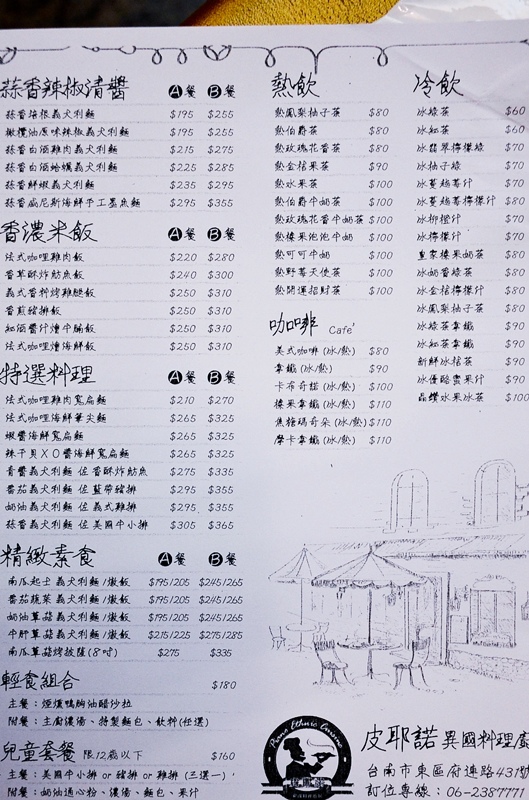 蒜香辣椒清醬 A餐 B餐
蒜香培根義大利麵 $195 $255
橄欖油原味辣椒義大利麵 $195 $255
蒜香白酒雞肉義大利麵 $215 $275
蒜香白酒蛤蠣義大利麵 $225 $285
蒜香鮮蝦義大利麵 $235 $295
蒜香威尼斯海鮮手工墨魚麵 $295 $355
香濃米飯 A餐 B餐
法式咖哩雞肉飯 $220 $280
香草酥炸魴魚飯 $240 $300
義式香料烤雞腿飯 $250 $310
香煎豬排飯 $250 $310
紅酒醬汁燴牛腩飯 $250 $310
法式咖哩燴海鮮飯 $250 $310
特選料理 A餐 B餐
法式咖哩雞肉寬扁麵 $210 $270
法式咖哩海鮮筆尖麵 $265 $325
蝦醬海鮮寬扁麵 $265 $325
辣干貝XO醬海鮮寬扁麵 $265 $325
青醬義大利麵 佐 香酥炸魴魚 $275 $335
番茄義大利麵 佐 藍帶豬排 $295 $355
奶油義大利麵 佐 義式雞排 $295 $355
蒜香義大利麵 佐 美國牛小排 $305 $365
精緻素食 A餐 B餐
南瓜起士 義大利麵/燉飯 $195/205 $245/265
番茄蔬菜 義大利麵/燉飯 $195/205 $245/265
奶油草菇 義大利麵/燉飯 $195/205 $245/265
牛肝草菇 義大利麵/燉飯 $215/225 $275/285
南瓜草菇烤披薩(8吋) $275 $335
輕食組合 $180
主餐：煙燻鴨胸油醋沙拉
附餐：主廚濃湯、特製麵包、飲料(任選)
兒童套餐 限12歲以下 $160
主餐：美國牛小排 or 豬排 or 雞排 (三選一)
附餐：奶油通心粉、濃湯、麵包、果汁
熱飲
熱鳳梨柚子茶 $80
熱伯爵茶 $80
熱玫瑰花香茶 $80
熱金桔果茶 $90
熱水果茶 $100
熱伯爵牛奶茶 $100
熱玫瑰花香牛奶茶 $100
熱榛果泡泡牛奶 $100
熱可可牛奶 $100
熱野莓天使茶 $100
熱開運招財茶 $100
咖啡 Cafe'
美式咖啡 (冰/熱) $80
拿鐵 (冰/熱) $90
卡布奇諾 (冰/熱) $100
榛果拿鐵 (冰/熱) $110
焦糖瑪奇朵 (冰/熱) $110
摩卡拿鐵 (冰/熱) $110
冷飲
冰綠茶 $60
冰紅茶 $60
冰翡翠檸檬綠 $70
冰柚子綠 $70
冰蔓越莓汁 $70
冰蔓越莓檸檬汁 $80
冰柳橙汁 $70
冰檸檬汁 $70
皇家榛果奶茶 $80
冰奶香綠茶 $80
冰金桔檸檬汁 $80
冰鳳梨柚子茶 $80
冰綠茶拿鐵 $90
冰紅茶拿鐵 $90
新鮮冰桔茶 $90
冰優酪蜜果汁 $90
晶鑽水果冰茶 $100
Piano Ethnic Cuisine
皮耶諾
皮耶諾 異國料理廚
台南市東區府連路431號
訂位專線：06-2387771